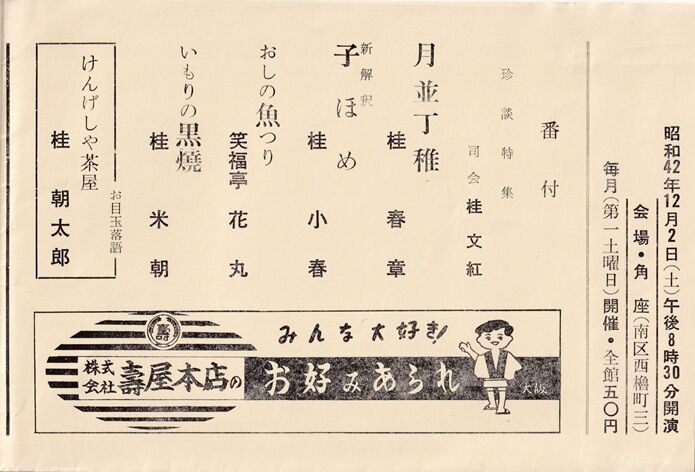 昭和42年12月2日(土)午後8時30分開演
会場・角座(南区西櫓町三)
毎月(第一土曜日)開催・全館五〇円
番付
珍談特集
司会 桂文紅
月並丁稚
桂春章
新解釈
子ほめ
桂小春
おしの魚つり
笑福亭花丸
いもりの黒焼
桂米朝
お目玉落語
けんげしや茶屋
桂朝太郎
みんな大好き!
壽
株式会社壽屋本店の
お好みあられ
大阪